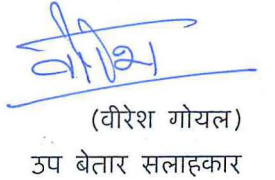 (वीरेश गोयल)
उप बेतार सलाहकार